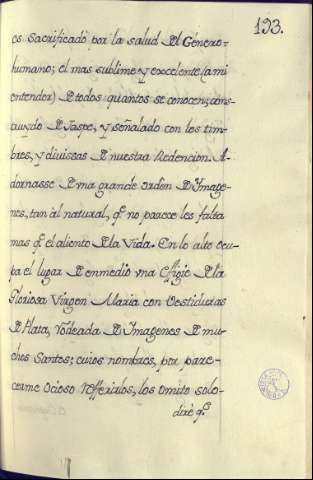 193.
es Sacrificado por la salud del Género-
humano; el mas sublime y excelente (a mi
entender) de todos quantos se conocen; cons-
truydo de Jaspe, y señalado con los tim-
bres, y divissas de nuestra Redencion. A-
dornasse de vna grande orden de Ymage-
nes, tan al natural, q.e no parece les falta
mas q.e el aliento de la Vida. En lo alto ocu-
pa el lugar de enmedio vna Effigie de la
Gloriosa Virgen Maria con Vestiduras
de Plata, rodeada de Ymagenes de mu-
chos Santos; cuios nombres, por pare-
cerme Ocioso refferirlos, los omito solo-
diré q.e